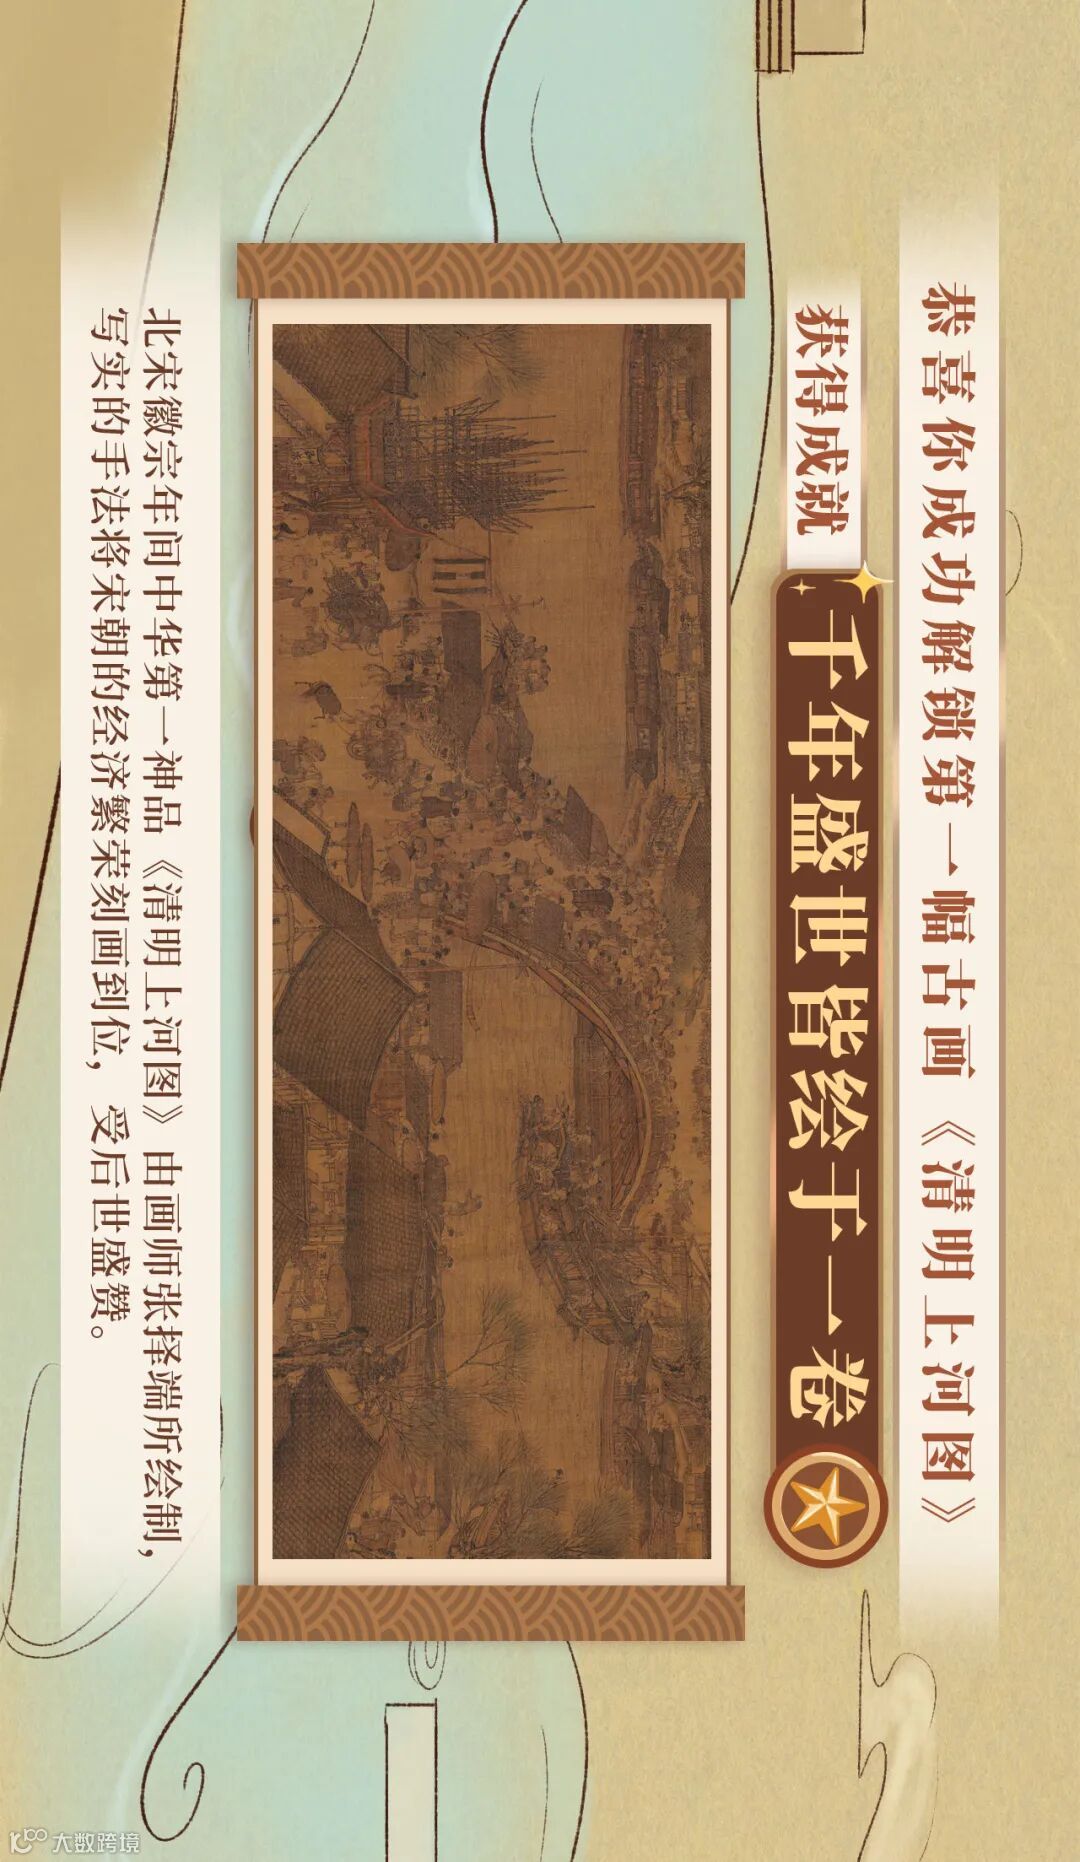 恭喜你成功解锁第一幅古画《清明上河图》
获得成就
千年盛世皆绘于一卷
北宋徽宗年间中华第一神品《清明上河图》由画师张择端所绘制，
写实的手法将宋朝的经济繁荣刻画到位，受后世盛赞。
大数跨境